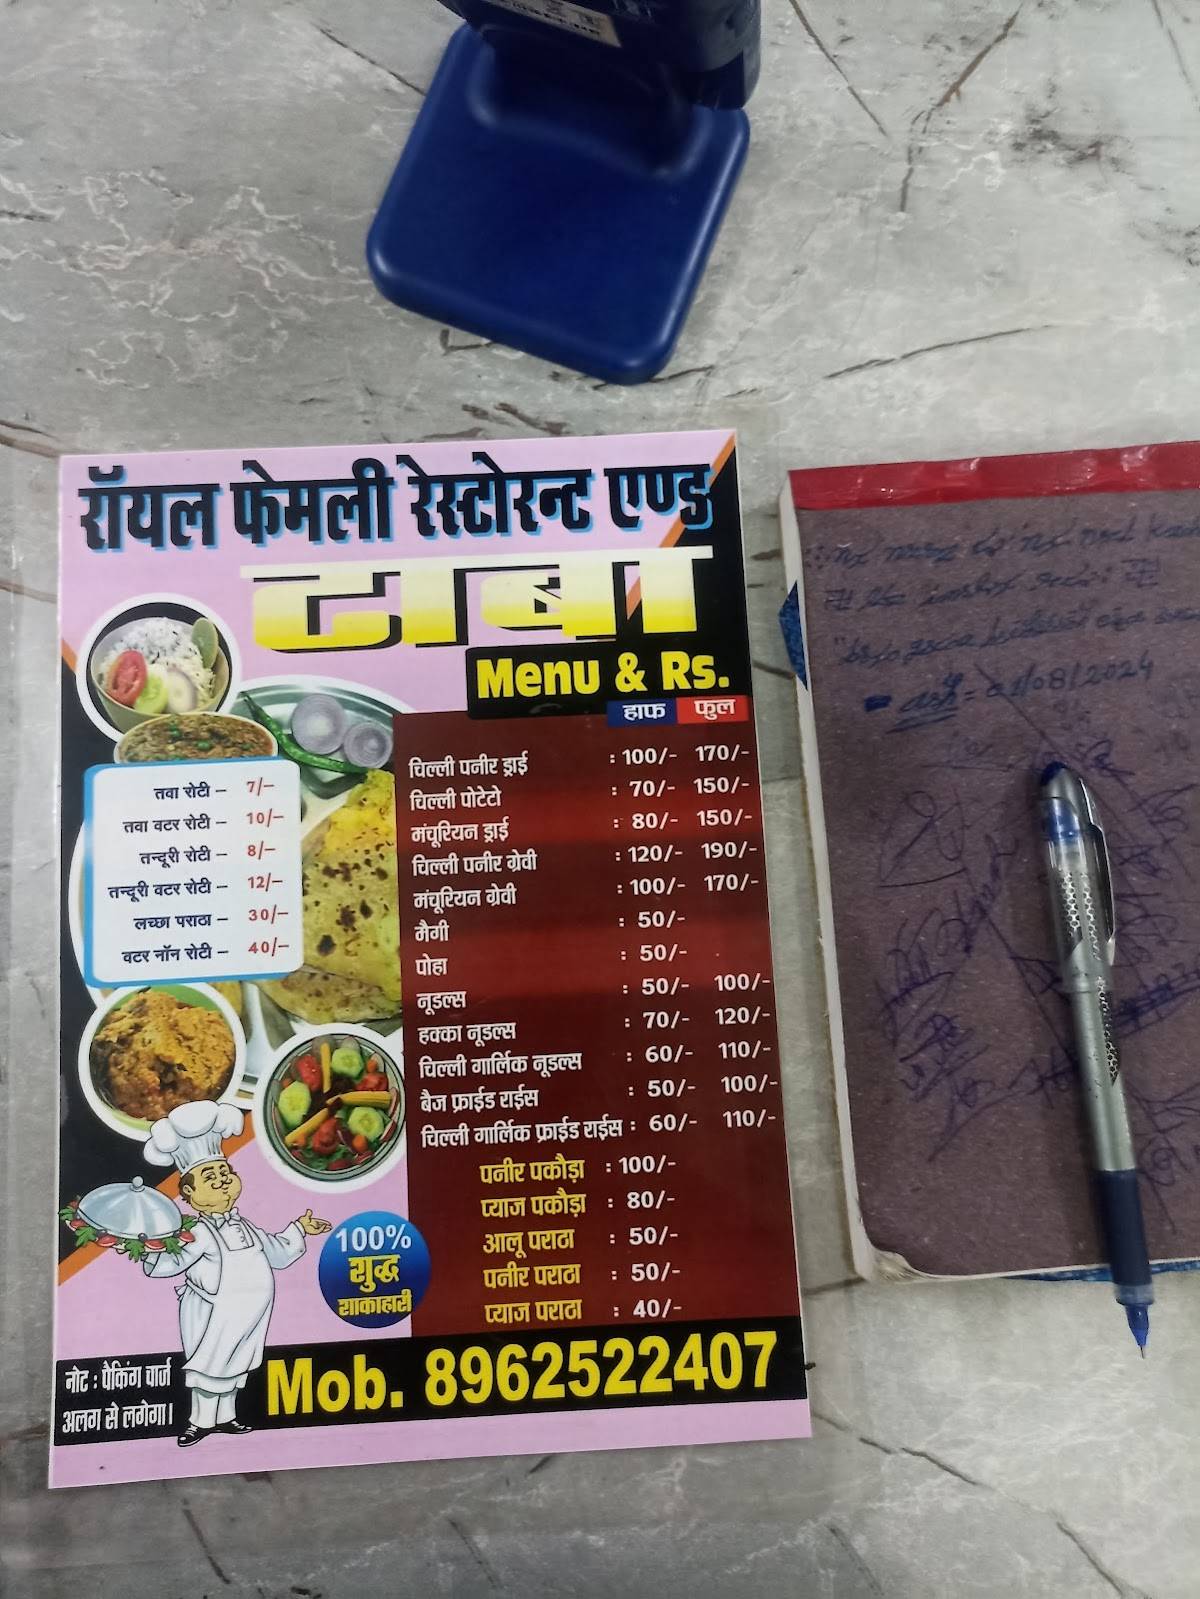 रॉयल फेमली रेस्टोरन्ट एण्ड
ढाबा
Menu & Rs.
हाफ फुल
तवा रोटी – 7/–
तवा बटर रोटी – 10/–
तन्दूरी रोटी – 8/–
तन्दूरी बटर रोटी – 12/–
लच्छा पराठा – 30/–
बटर नॉन रोटी – 40/–
चिल्ली पनीर ड्राई : 100/- 170/-
चिल्ली पोटेटो : 70/- 150/-
मंचूरियन ड्राई : 80/- 150/-
चिल्ली पनीर ग्रेवी : 120/- 190/-
मंचूरियन ग्रेवी : 100/- 170/-
मैगी : 50/-
पोहा : 50/-
नूडल्स : 50/- 100/-
हक्का नूडल्स : 70/- 120/-
चिल्ली गार्लिक नूडल्स : 60/- 110/-
बैज फ्राईड राईस : 50/- 100/-
चिल्ली गार्लिक फ्राईड राईस : 60/- 110/-
पनीर पकौड़ा : 100/-
प्याज पकौड़ा : 80/-
आलू पराठा : 50/-
पनीर पराठा : 50/-
प्याज पराठा : 40/-
100%
शुद्ध
शाकाहारी
नोट : पैकिंग चार्ज
अलग से लगेगा।
Mob. 8962522407
= 01/08/2024